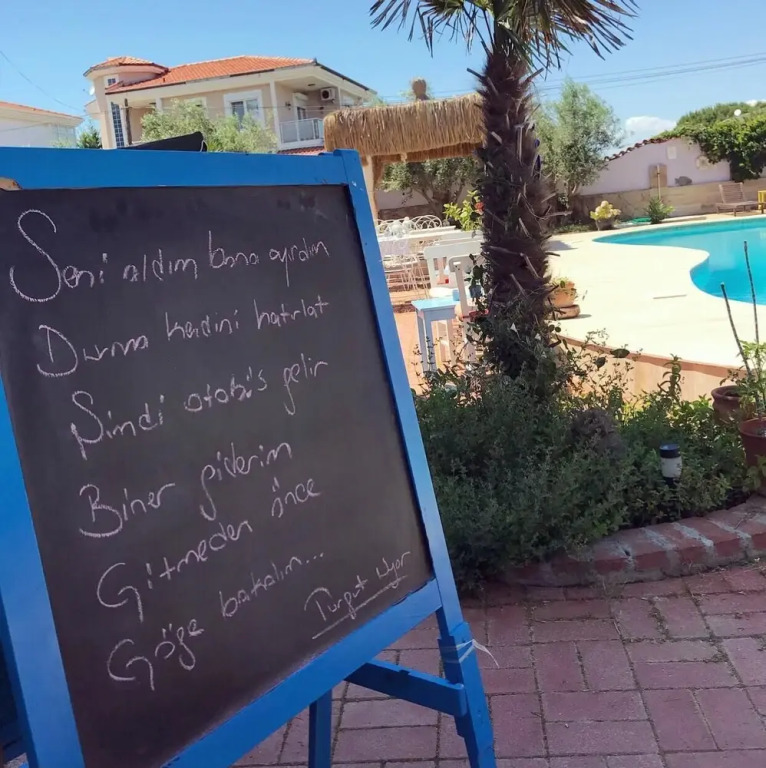 Seni aldım bana ayırdım
Durma kendini hatırlat
Şimdi otobüs gelir
Biner giderim
Gitmeden önce
Göğe bakalım...
Turgut Uyar